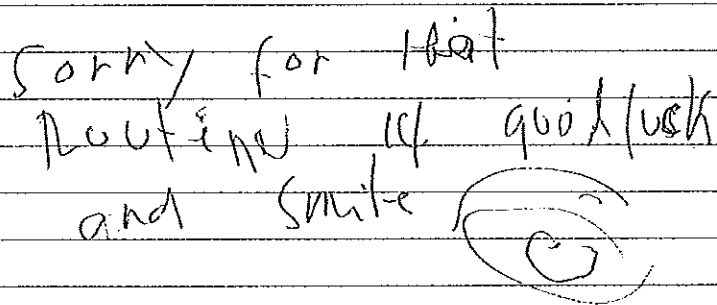 Sorry for that
Routine is good luck
and smile